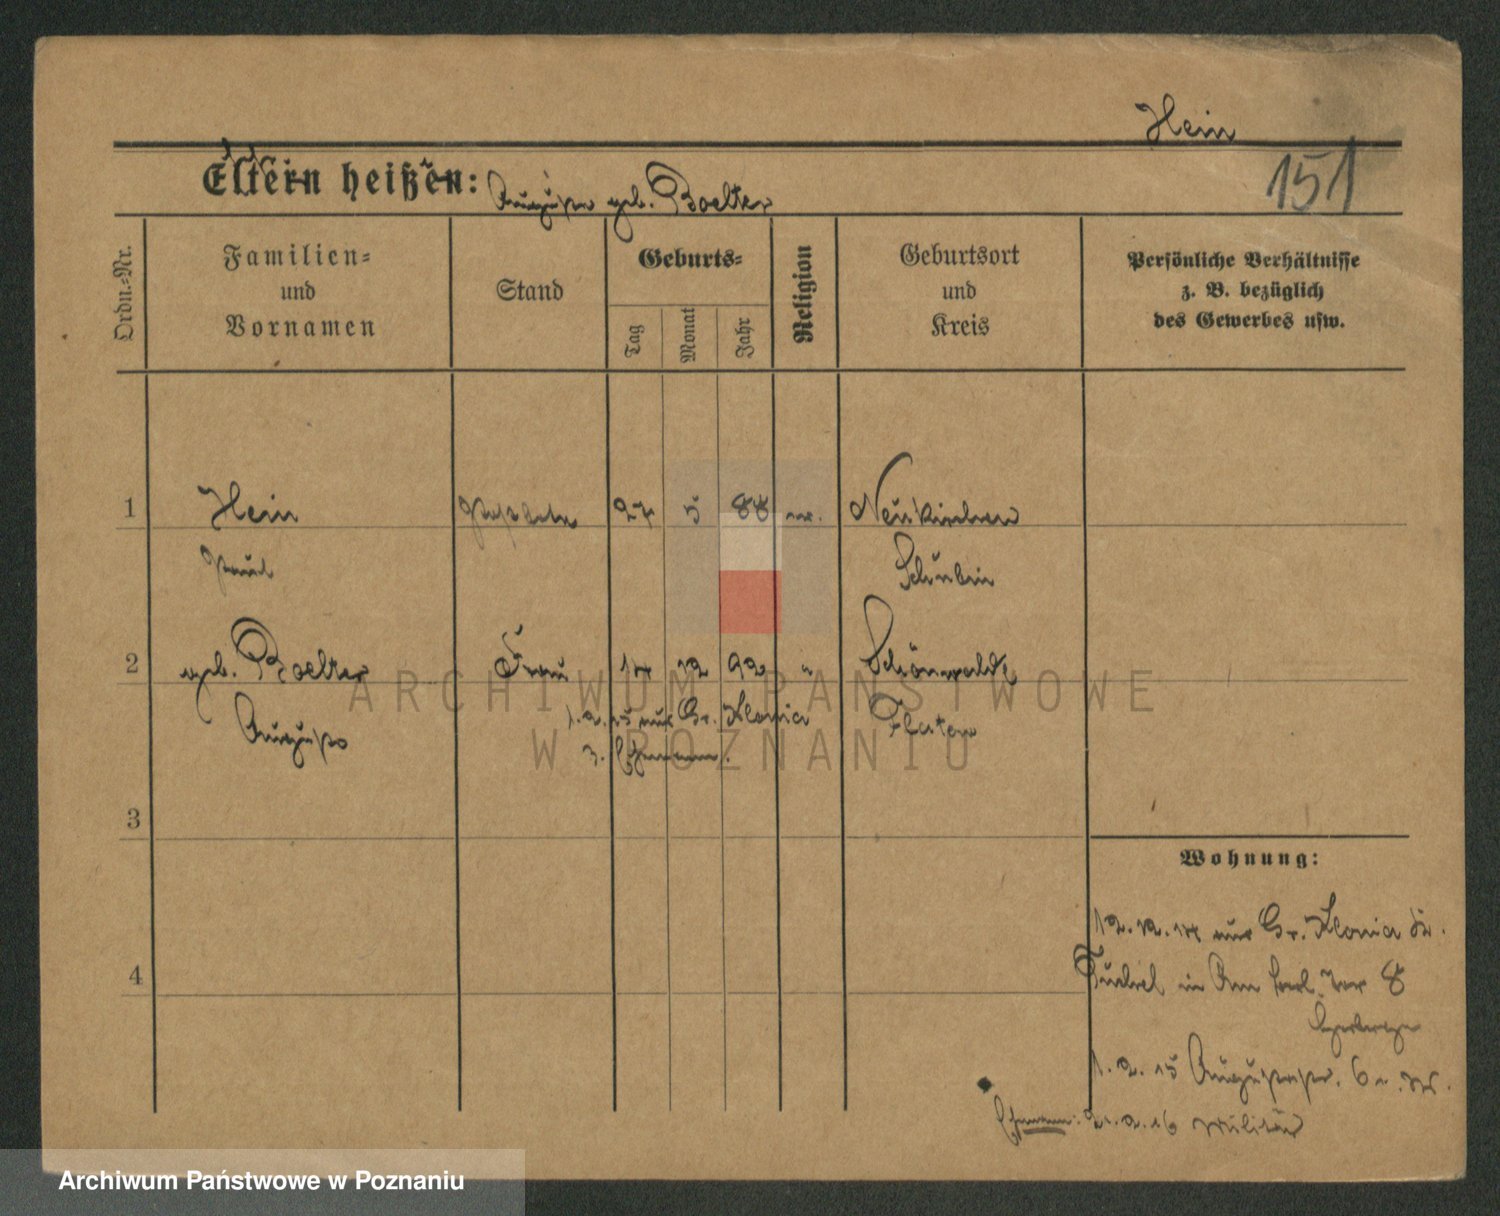 Hein
151
Eltern heißen: Auguste geb. Boelter
Ordn.-Nr.
Familien-
und
Vornamen
Stand
Geburts-
Tag
Monat
Jahr
Religion
Geburtsort
und
Kreis
Persönliche Verhältnisse
z. B. bezüglich
des Gewerbes usw.
1 Hein 27 5 88 ev. Neukirchen
Paul Schubin
2 geb. Boelter Frau 14 12 92 " Schönwalde
Auguste 1.2.15 aus Gr. Klonia Flatow
z. Ehemann.
3
4
Wohnung:
12.12.14 aus Gr. Klonia Kr.
Tuchel in Am Berl. Tor 8
Herberge
1.2.15 Augustastr. 6
Ehemann: 21.2.16 Militär
ARCHIWUM PAŃSTWOWE
W POZNANIU
Archiwum Państwowe w Poznaniu